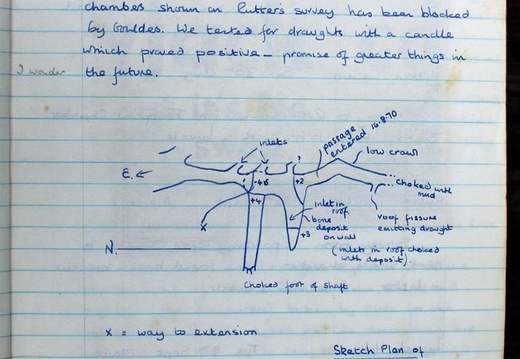 chambers shown on Rutter's survey has been blocked
by Gouldes. We tested for draughts with a candle
which proved positive — promise of greater things in
I wonder
the future.
inlets
passage
entered 16.8.70
low crawl
E.
+2
choked with
mud
+4
inlet in
roof.
bone
deposit
on wall
+3
roof fissure
emitting draught
x
N.
(inlets in roof choked
with deposit)
Choked foot of shaft
x = way to extension
Sketch Plan of